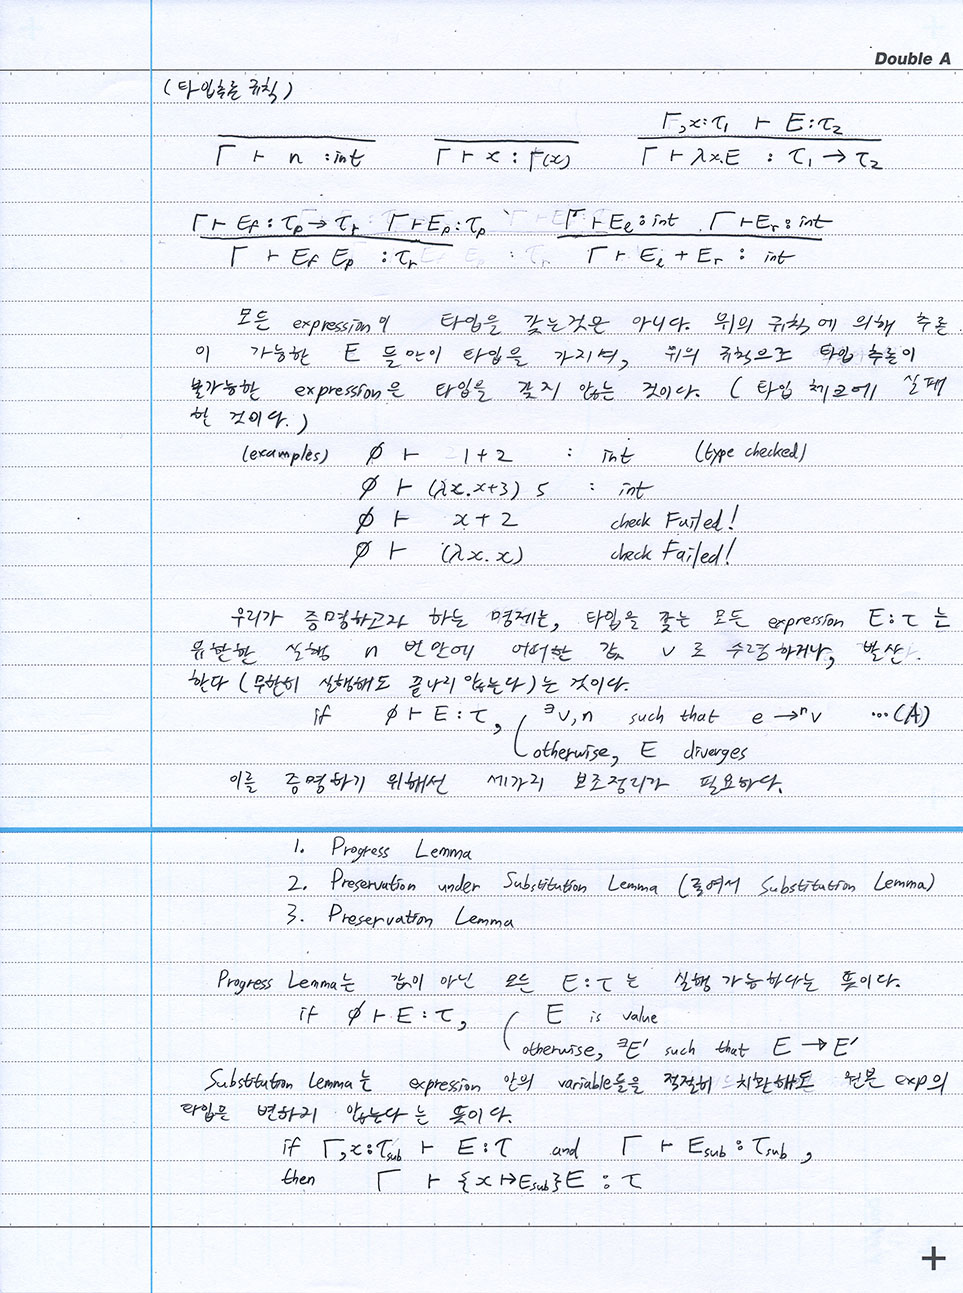 Double A
(타입추론 규칙)
Γ, x:τ₁ ⊢ E:τ₂
Γ ⊢ n : int    Γ ⊢ x : Γ(x)    Γ ⊢ λx.E : τ₁ → τ₂
Γ ⊢ E_f : τ_p → τ_r  Γ ⊢ E_p : τ_p    Γ ⊢ E_l : int  Γ ⊢ E_r : int
Γ ⊢ E_f E_p : τ_r    Γ ⊢ E_l + E_r : int
모든 expression이 타입을 갖는것은 아니다. 위의 규칙에 의해 추론
이 가능한 E 들만이 타입을 가지며, 위의 규칙으로 타입 추론이
불가능한 expression은 타입을 갖지 않는 것이다. (타입 체크에 실패
한 것이다.)
(examples) ∅ ⊢ 1+2 : int (type checked)
∅ ⊢ (λx.x+3) 5 : int
∅ ⊢ x+2 check Failed!
∅ ⊢ (λx.x) check Failed!
우리가 증명하고자 하는 명제는, 타입을 갖는 모든 expression E:τ 는
유한한 실행 n 번만에 어떠한 값 v 로 수렴하거나, 발산
한다 (무한히 실행해도 끝나지 않는다)는 것이다.
if ∅ ⊢ E:τ, ( ∃v,n such that e →ⁿ v ...(A)
otherwise, E diverges
이를 증명하기 위해선 세가지 보조정리가 필요하다.
1. Progress Lemma
2. Preservation under Substitution Lemma (줄여서 Substitution Lemma)
3. Preservation Lemma
Progress Lemma는 값이 아닌 모든 E:τ 는 실행 가능하다는 뜻이다.
if ∅ ⊢ E:τ, ( E is value
otherwise, ∃E' such that E → E'
Substitution Lemma는 expression 안의 variable들을 적절히 치환해도 원본 exp의
타입은 변하지 않는다는 뜻이다.
if Γ, x:τ_sub ⊢ E:τ and Γ ⊢ E_sub : τ_sub,
then Γ ⊢ {x ↦ E_sub}E : τ